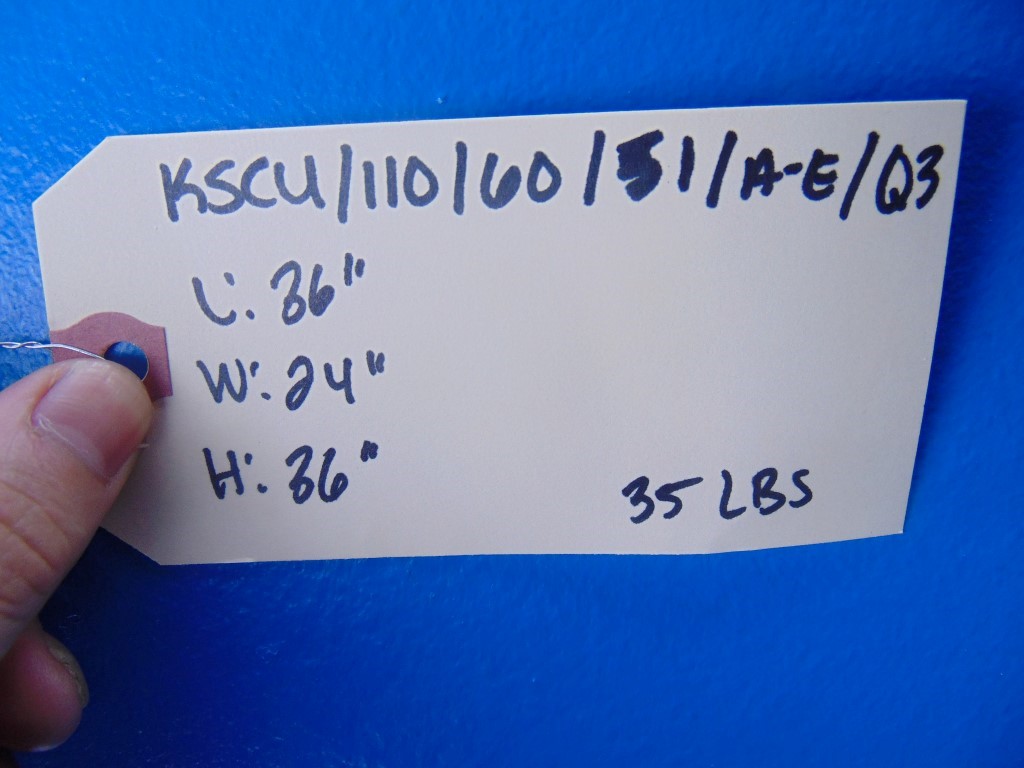 KSCU/110/60/51/A-E/Q3
L: 36"
W: 24"
H: 36"
35 LBS